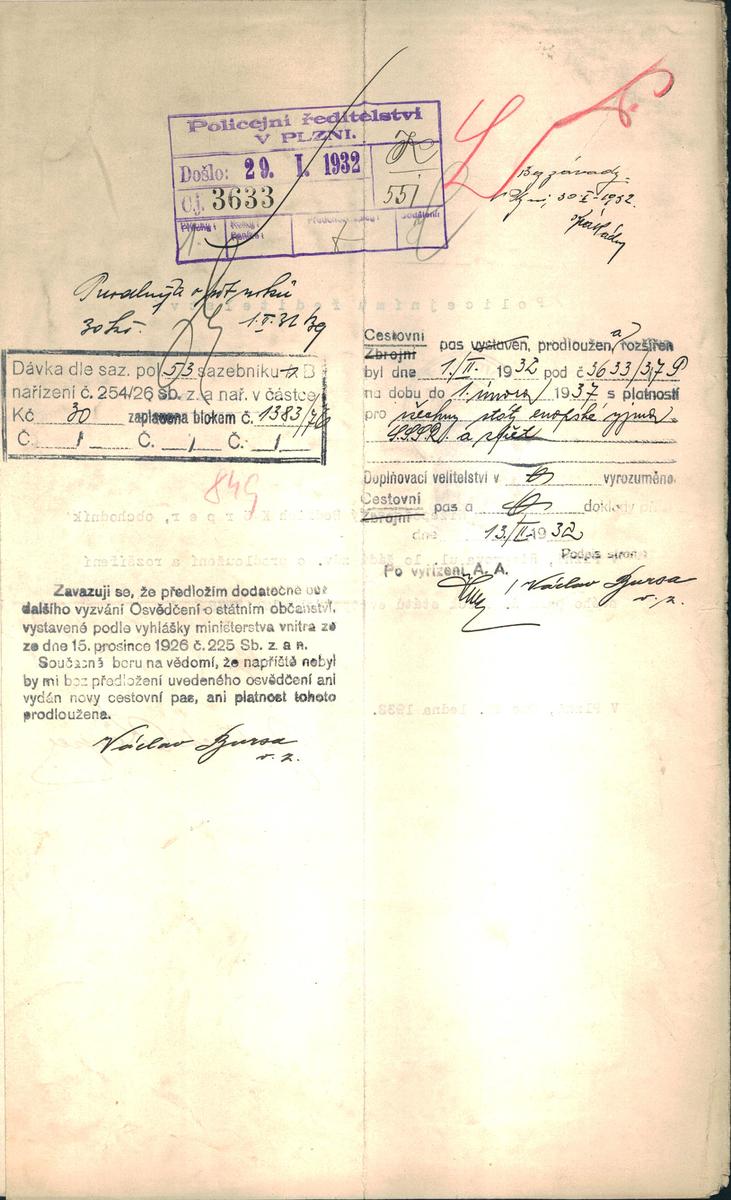 Policejní ředitelství
V PLZNI.
Došlo: 29. I. 1932
Čj. 3633
K
551
Přílohy:
1.
7
oddělení:
Bez závady.
30-I-1932.
30 Kč. 1.II.32
Dávka dle saz. pol. 53 sazebníku B
nařízení č. 254/26 Sb. z. a nař. v částce
Kč 30 zaplacena blokem č. 1383/76
Č. / Č. / Č. /
849
Cestovní pas vystaven, prodloužen, a rozšířen
Zbrojní
byl dne 1./II. 1932 pod č 3633/379
na dobu do 1. února 1937 s platností
pro všechny státy evropské vyjma
a
Doplňovací velitelství v vyrozuměno.
Cestovní pas a doklady
Zbrojní
dne 13./II 1932
Podpis strany:
Po vyřízení A. A.
Václav Bursa
v. z.
Zavazuji se, že předložím dodatečně bez
dalšího vyzvání Osvědčení o státním občanství,
vystavené podle vyhlášky ministerstva vnitra ze
ze dne 15. prosince 1926 č. 225 Sb. z. a n.
Současně beru na vědomí, že napříště nebyl
by mi bez předložení uvedeného osvědčení ani
vydán novy cestovní pas, ani platnost tohoto
prodloužena.
Václav Bursa
v. z.